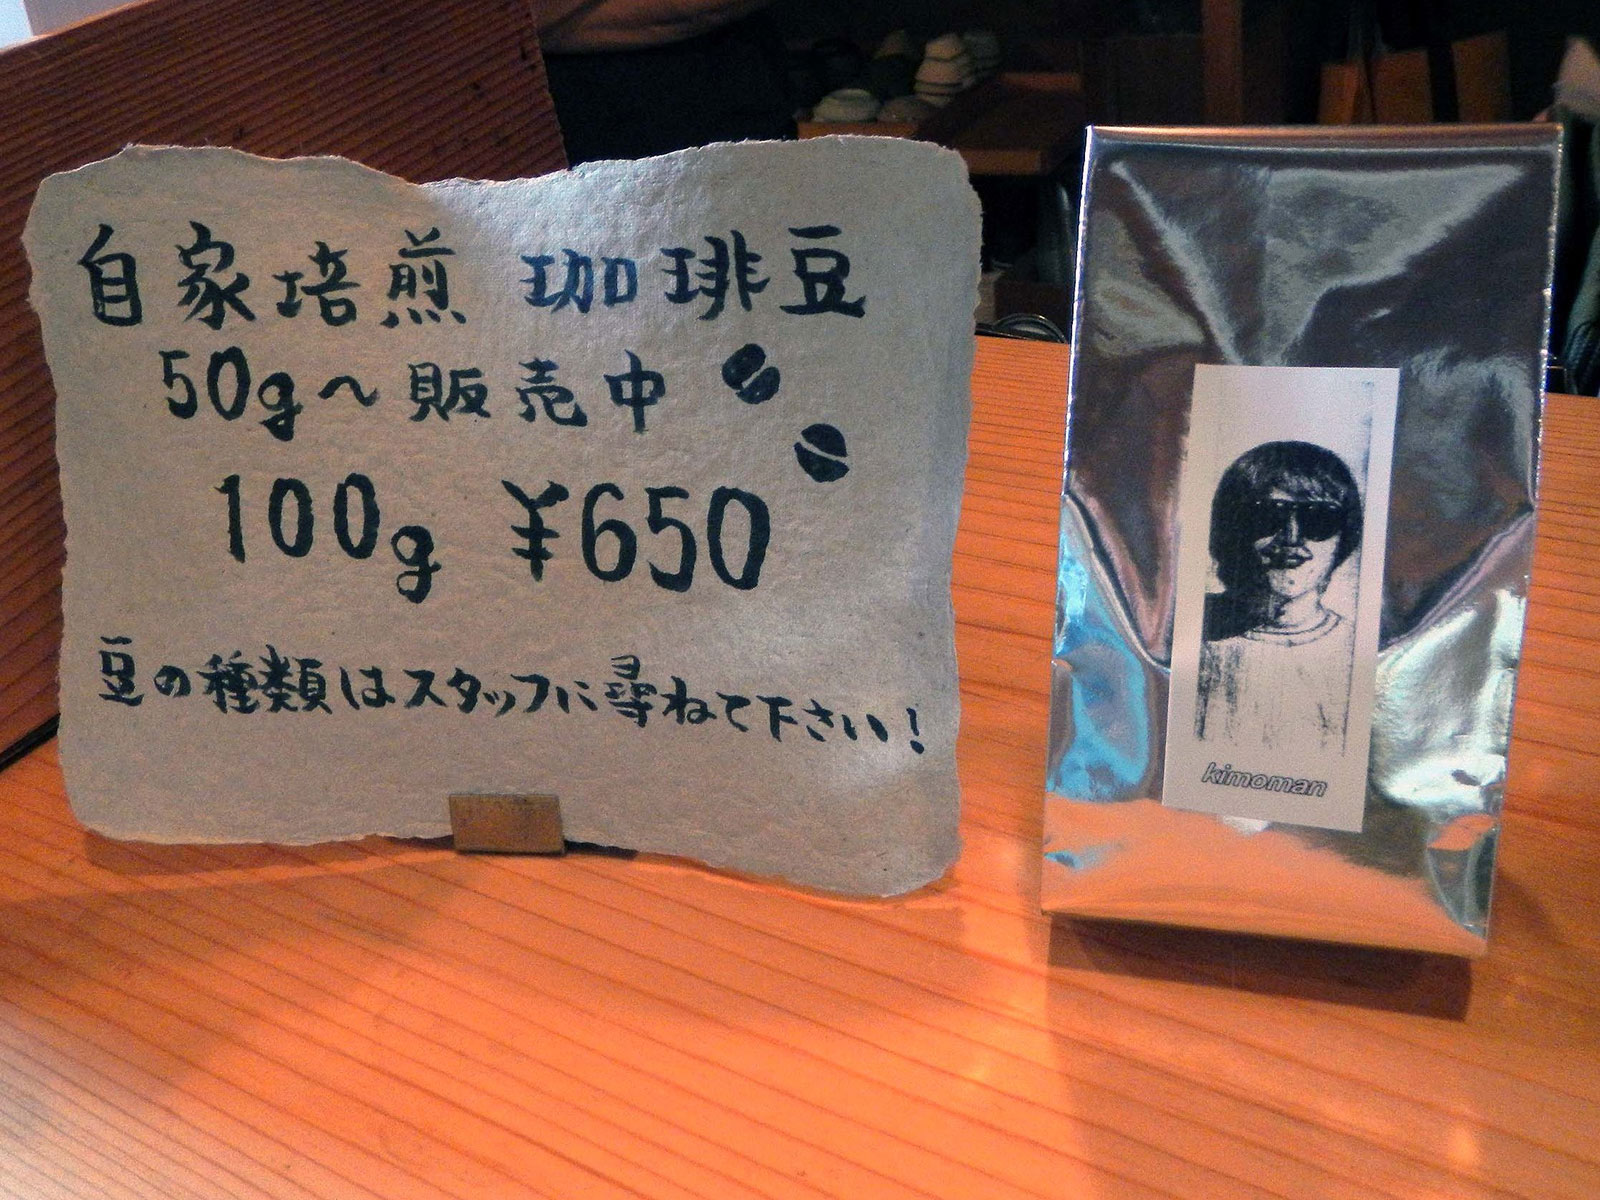 自家培煎 珈琲豆
50g〜販売中
100g ¥650
豆の種類はスタッフに尋ねて下さい!
kimoman